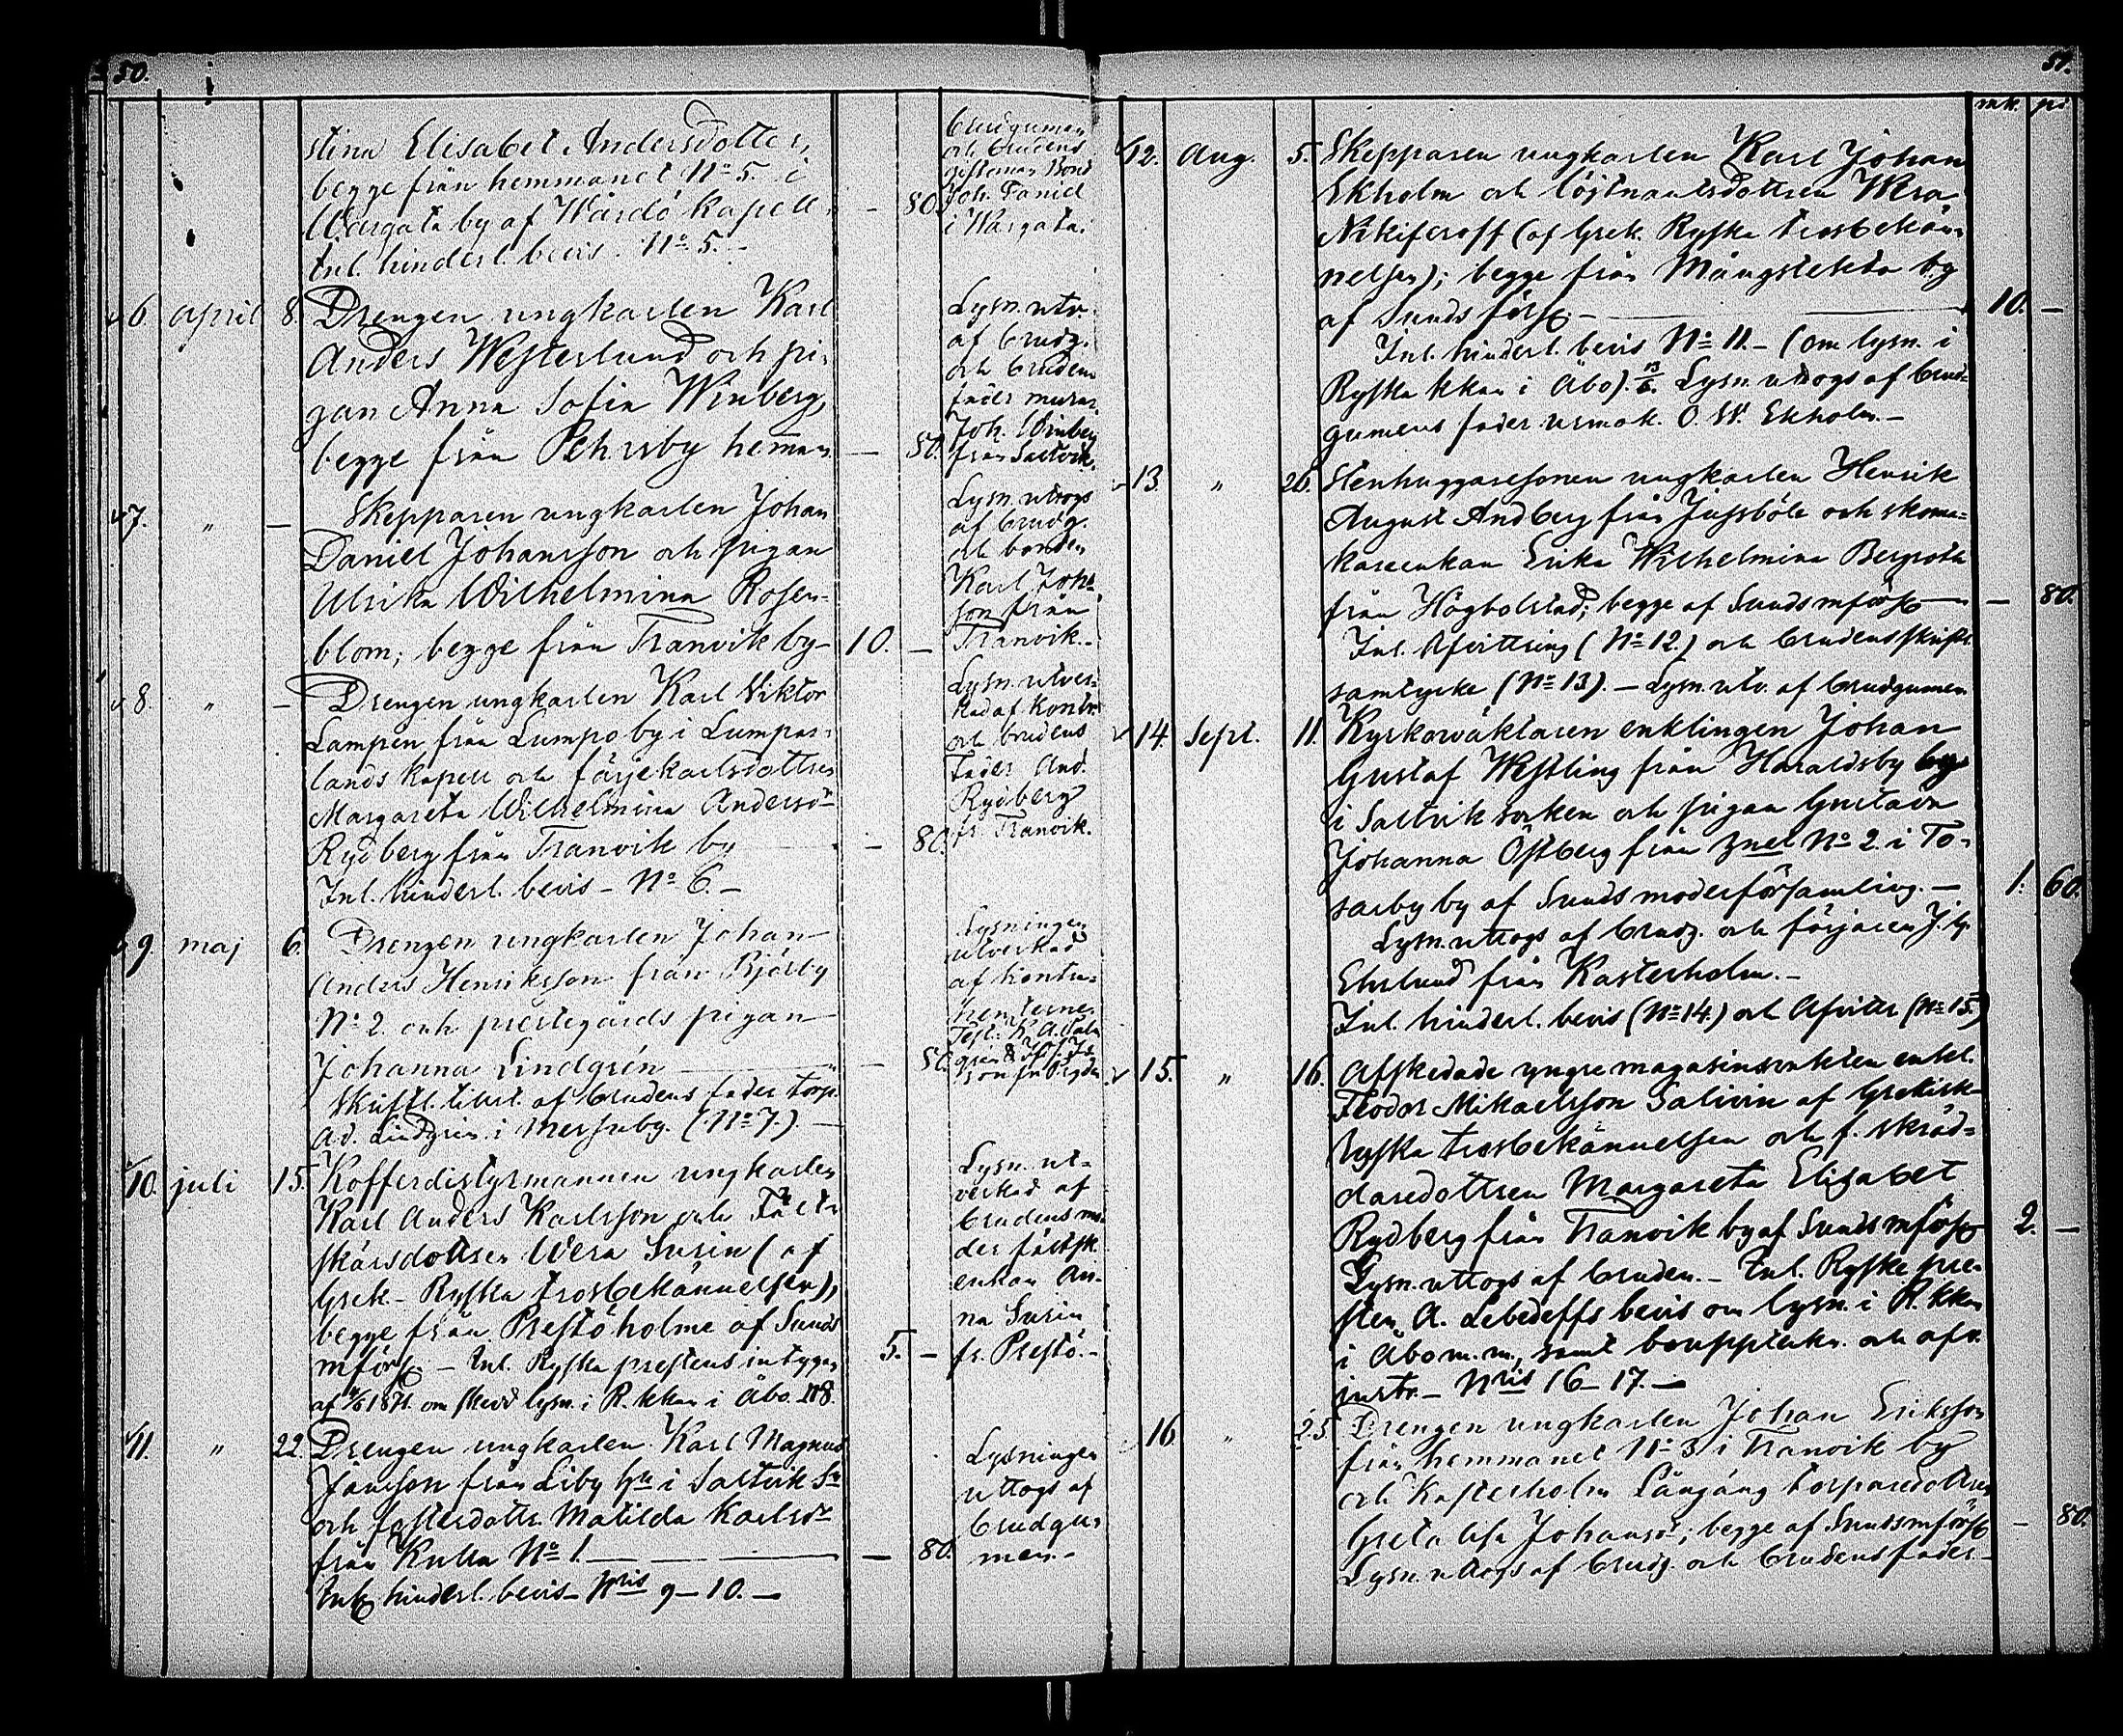 50.
stina Elisabet Andersdotter,
begge från hemmanet No 5. i
Wargata by af Wårdö kapell - 80.
Inl. hinderl. bevis. No 5. -
Brudgumen
och brudens
giftoman Bond
Joh. Daniel
i Wargata.
6. april 8. Drengen ungkarlen Karl
Anders Westerlund och pi-
gan Anna Sofia Winberg,
begge från Pehrsby heman — 80.
Lysn. utv.
af brudg.
och brudens
fader murar.
Joh. Winberg
från Saltvik.
7. " — Skepparen ungkarlen Johan
Daniel Johansson och pigan
Ulrika Wilhelmina Rosen-
blom; begge från Tranvik by- 10. —
Lysn. uttogs
af brudg.
och bonden
Karl Johs-
son från
Tranvik.-
8. " — Drengen ungkarlen Karl Viktor
Lampén från Lumpo by i Lumpar-
lands kapell och färjekarlsdottren
Margareta Wilhelmina Andersdr
Rydberg från Tranvik by — 80.
Inl. hinderl. bevis - No 6. -
Lysn. utver-
kad af kontr.
och brudens
fader And.
Rydberg
fr. Tranvik.
9. maj 6. Drengen ungkarlen Johan
Anders Henriksson från Björby
No 2. och prestegårds pigan
Johanna Lindgrén — 80.
Skriftl. tillst. af brudens fader torp.
Ad. Lindgrén i Mersuby. (No 7.) —
Lysningen
utverkad
af kontra-
henterne.
10. juli 15. Kofferdistyrmannen ungkarlen
Karl Anders Karlsson och Fält-
skärsdottren Wera Surin (af
Grek.- Ryska trosbekännelsen),
begge från Prestö holme af Sunds
mförs. — Inl. Ryska prestens intygan 5. —
af 11/6 1871. om skedd lysn. i R. kkan i Åbo. No 8.
Lysn. ut-
verkad af
brudens mo-
der fältsk.
enkan An-
na Surin
fr. Prestö.-
11. " 22. Drengen ungkarlen Karl Magnus
Jansson från Liby hn i Saltvik Sn
och fosterdottr. Matilda Karlsdr
från Kulla No 1. — — 80.
Inl. hinderl. bevis - Nris 9-10. —
Lysningen
uttogs af
brudgu-
men.-
51.
mk. pi
12. Aug. 5. Skepparen ungkarlen Karl Johan
Ekholm och löjtnantsdottren Wera
Nikiferoff (af Grek. Ryska trosbekän-
nelsen); begge från Mångstekta by
af Sunds förs. — 10. —
Inl. hinderl. bevis No 11. - (om lysn. i
Ryska kkan i Åbo). 13/6. Lysn. uttogs af brud-
gumens fader urmak. O. W. Ekholm.—
13. " 26. Stenhuggaresonen ungkarlen Henrik
August Andberg från Jussböle och skoma-
kareenkan Erika Wilhelmina Bergroth
från Högbolstad; begge af Sunds mförs — — 80.
Inl. Afvittring (No 12.) och brudens skriftl.
samtycke (No 13). — Lysn. utv. af brudgumen
14. Sept. 11. Kyrkovaktaren enklingen Johan
Gustaf Westling från Haraldsby by
i Saltvik socken och pigan Gustava
Johanna Östberg från Znel No 2 i To-
sarby by af Sunds moderförsamling. — 1. 60.
Lysn. uttogs af brudg. och färjaren J. G.
Ekelund från Kasterholm. -
Inl. hinderl. bevis (No 14.) och Afvittr. (No 15.)
15. " 16. Afskedade yngre magasinsvakten enkel.
Feodor Mikaelsson Salivin af Grekisk-
ryska trosbekännelsen och f. skräd-
daredottren Margareta Elisabet
Rydberg från Tranvik by af Sunds mförs 2. —
Lysn. uttogs af bruden. - Inl. Ryske pre-
sten A. Lebedeffs bevis om lysn. i R. kkan
i Åbo m.m., samt bouppteckn. och afv.
instr. - Nris 16-17. —
16. " 25. Drengen ungkarlen Johan Eriksson
från hemmanet No 3 i Tranvik by
och Kasterholm Långäng torparedottren
Greta Lisa Johansdr; begge af Sunds mförs — 80.
Lysn. uttogs af brudg. och brudens fader-